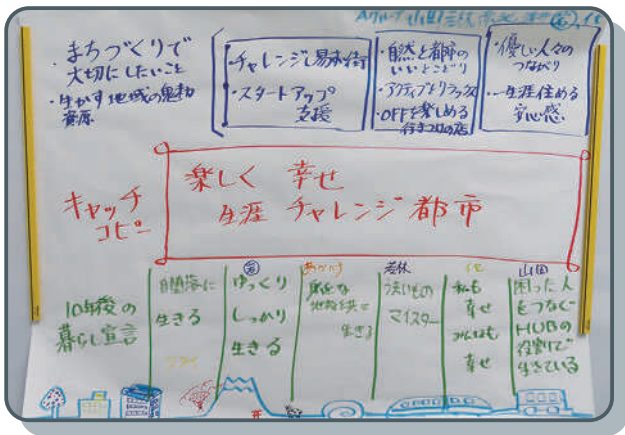 Aグループ 山田
・まちづくりで
大切にしたいこと
・生かす地域の魅力
資源
・チャレンジし易い街
・スタートアップ
支援
・自然と都市の
いいとこどり
・アクティブとリラックス
・OFFを楽しめる
行きつけの店
・優しい人々の
つながり
・一生涯住める
安心感
キャッチ
コピー
楽しく 幸せ
生涯 チャレンジ都市
10年後の
暮らし宣言
自堕落に
生きる
ゆっくり
しっかり
生きる
生きる
若林
洗いもの
マイスター
私も
幸せ
みんなも
幸せ
山田
困った人
をつなぐ
HUBの
役割で
生きている